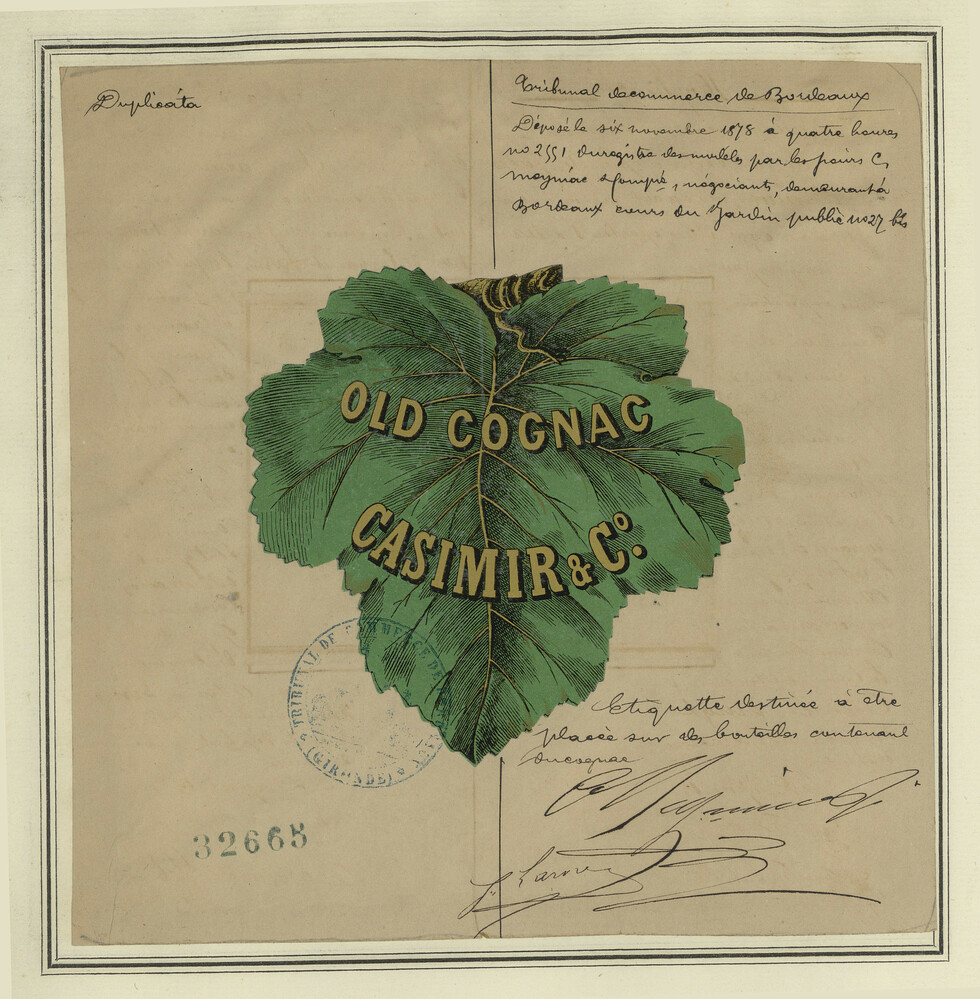 Duplicata
Tribunal de commerce de Bordeaux
Déposé le six novembre 1878 à quatre heures
no 2551 du registre des modèles par les sieurs C,
Meyniac & Compie, négociants, demeurant à
Bordeaux cours du Jardin public no 27 bis
OLD COGNAC
CASIMIR & Co.
TRIBUNAL DE COMMERCE DE
(GIRONDE)
Etiquette destinée à être
placée sur des bouteilles contenant
du cognac
32665